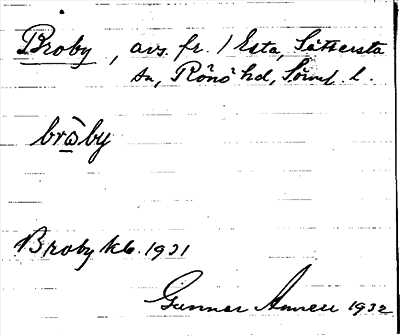 Broby, avs. fr. 1 Esta, Sättersta
sn, Rönö hd, Sörml. l.
bròby
Broby kb. 1931
Gunnar Anneli 1932